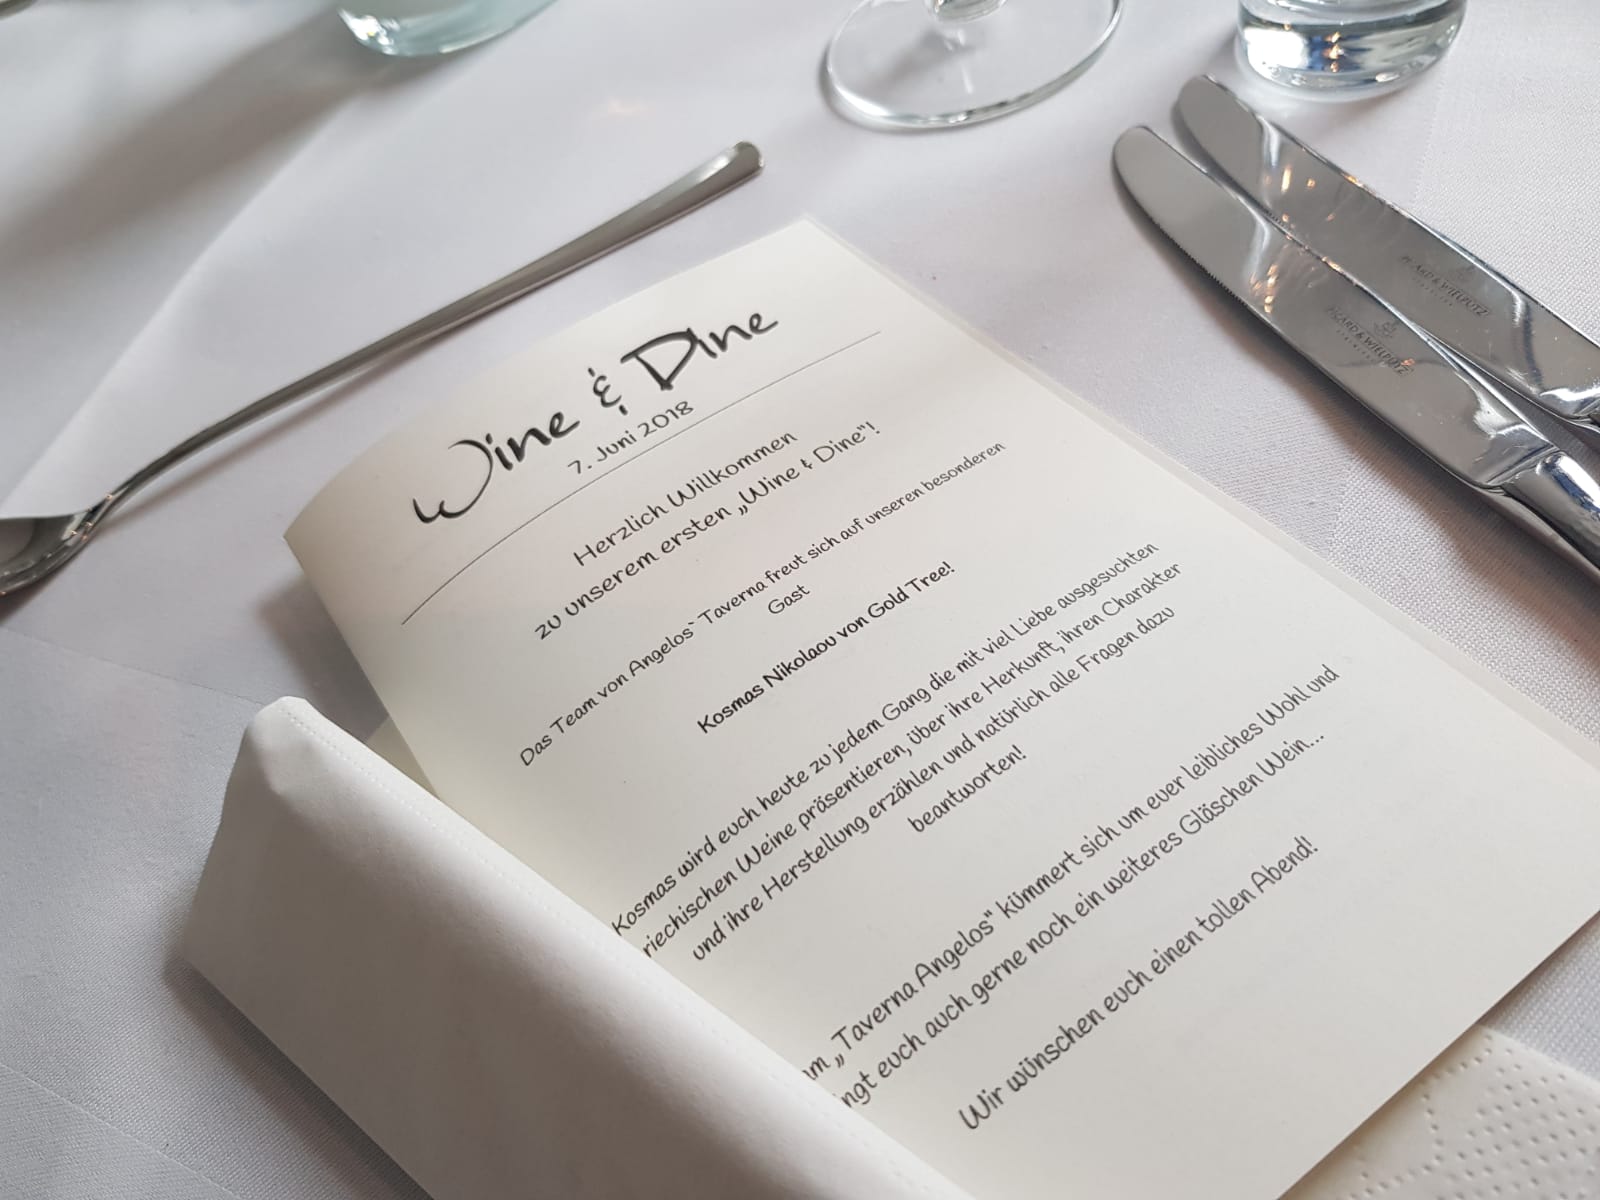 Wine & Dine
7. Juni 2018
Herzlich Willkommen
zu unserem ersten „Wine & Dine“!
Das Team von Angelos` Taverna freut sich auf unseren besonderen
Gast
Kosmas Nikolaou von Gold Tree!
Kosmas wird euch heute zu jedem Gang die mit viel Liebe ausgesuchten
riechischen Weine präsentieren, über ihre Herkunft, ihren Charakter
und ihre Herstellung erzählen und natürlich alle Fragen dazu
beantworten!
„Taverna Angelos“ kümmert sich um euer leibliches Wohl und
ngt euch auch gerne noch ein weiteres Gläschen Wein...
Wir wünschen euch einen tollen Abend!
PICARD & WIELPÜTZ
PICARD & WIELPÜTZ